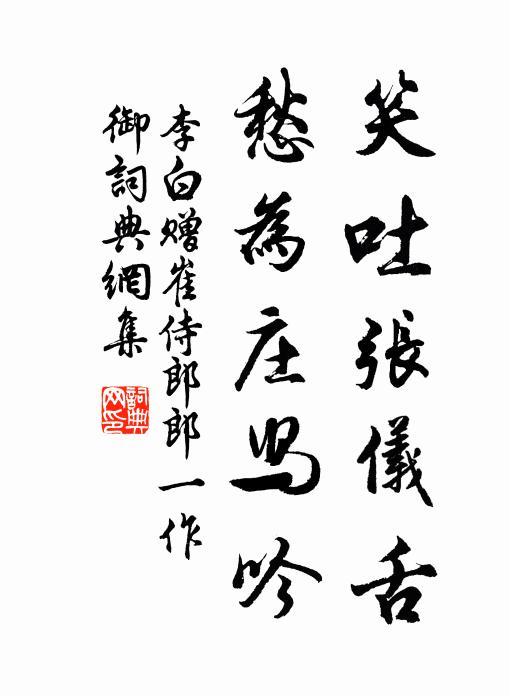 笑吐張儀舌
愁為庄舄吟
李白赠崔侍郎郎一作
御詞典網集
詞典网印